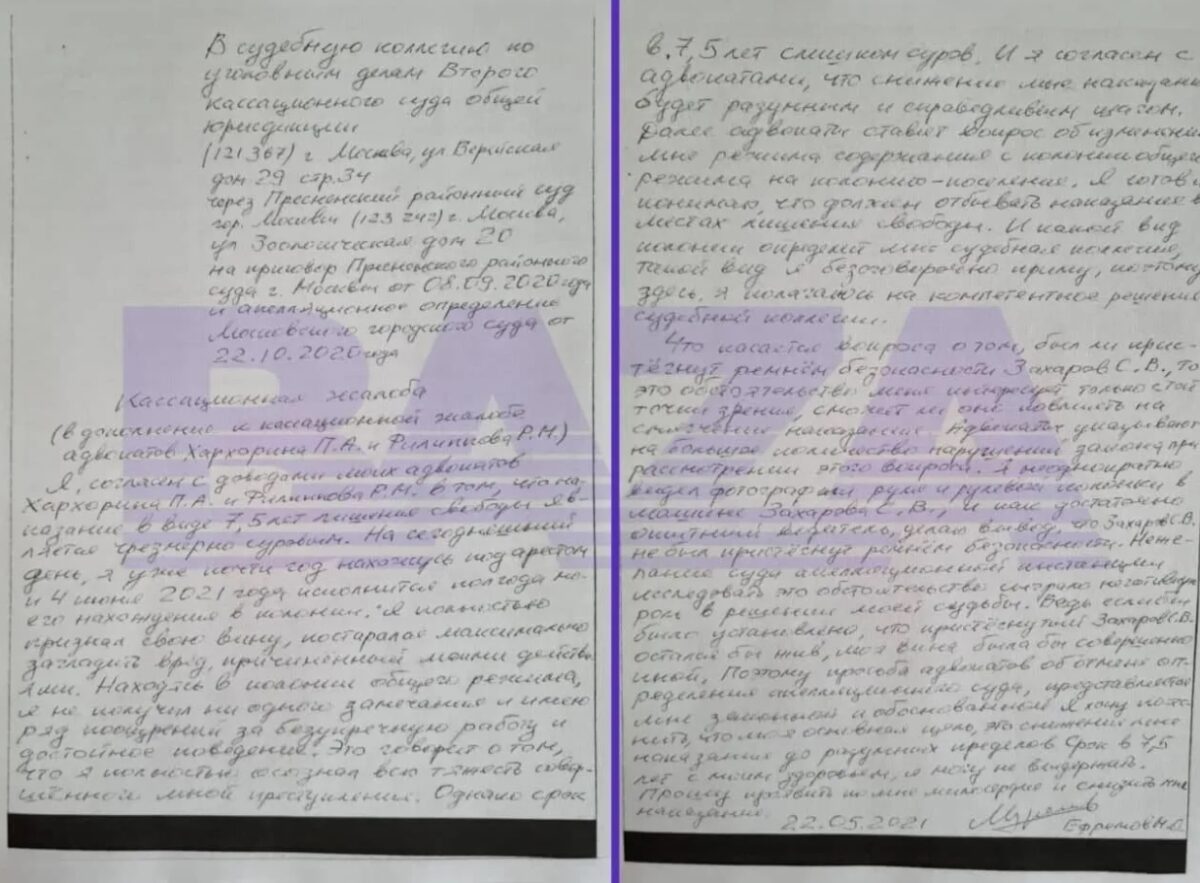 В судебную коллегию по
уголовным делам Второго
кассационного суда общей
юрисдикции
(121367) г Москва, ул Верейская
дом 29 стр.34
через Пресненский районный суд
гор. Москвы (123242) г. Москва,
ул Зоологическая дом 20
на приговор Пресненского районного
суда г. Москвы от 08.09.2020 года
и апелляционное определение
Московского городского суда от
22.10.2020 года
Кассационная жалоба
(в дополнение к кассационной жалобе
адвокатов Хархорина П.А. и Филиппова Р.Н.)
Я, согласен с доводами моих адвокатов
Хархорина П.А. и Филиппова Р.Н. в том, что на-
казание в виде 7,5 лет лишения свободы яв-
ляется чрезмерно суровым. На сегодняшний
день, я уже почти год нахожусь под арестом
и 4 июня 2021 года исполнится полгода мо-
его нахождения в колонии. Я полностью
признал свою вину, постарался максимально
загладить вред, причинённый моими действи-
ями. Находясь в колонии общего режима,
я не получил ни одного замечания и имею
ряд поощрений за безупречную работу и
достойное поведение. Это говорит о том,
что я полностью осознал всю тяжесть совер-
шённой мной преступления. Однако срок
в 7,5 лет слишком суров. И я согласен с
адвокатами, что снижение мне наказани
будет разумным и справедливым шагом.
Далее адвокаты ставят вопрос об изменени
мне режима содержания с колонии общег
режима на колонию-поселение. Я готов и
понимаю, что должен отбывать наказание в
местах лишения свободы. И какой вид
колонии определит мне судебная коллегия,
такой вид я безоговорочно приму, поэтому
здесь, я полагаюсь на компетентное решени
судебной коллегии.
Что касается вопроса о том, был ли прис-
тёгнут ремнём безопасности Захаров С.В., то
это обстоятельство меня интересует только с той
точки зрения, сможет ли оно повлиять на
смягчение наказания. Адвокаты указывают
на большое количество нарушений закона при
рассмотрении этого вопроса. Я неоднократно
видел фотографии руля и рулевой колонки в
машине Захарова С.В., и как достаточно
опытный водитель, делаю вывод, что Захаров С.В.
не был пристёгнут ремнём безопасности. Неже-
лание суда апелляционной инстанции
исследовать это обстоятельство сыграло негативную
роль в решении моей судьбы. Ведь если бы
было установлено, что пристёгнутый Захаров С.В.
остался бы жив, моя вина была бы совершенно
иной. Поэтому просьба адвокатов об отмене оп-
ределения апелляционного суда, представляется
мне законной и обоснованной. Я хочу пояс-
нить, что моя основная цель, это снижение мне
наказания до разумных пределов. Срок в 7,5
лет с моим здоровьем, я могу не выдержать.
Прошу проявить ко мне милосердие и снизить мне
наказание.
22.05.2021 Ефремов М.О.
BAZA